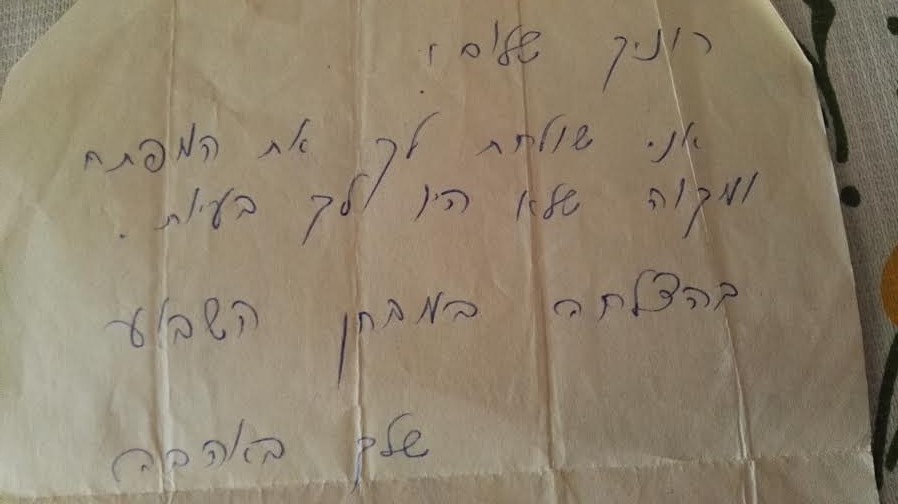 רוניק שלום !
אני שולחת לך את המפתח
ומקוה שלא היו לך בעיות .
בהצלחה במבחן השבוע
שלך באהבה